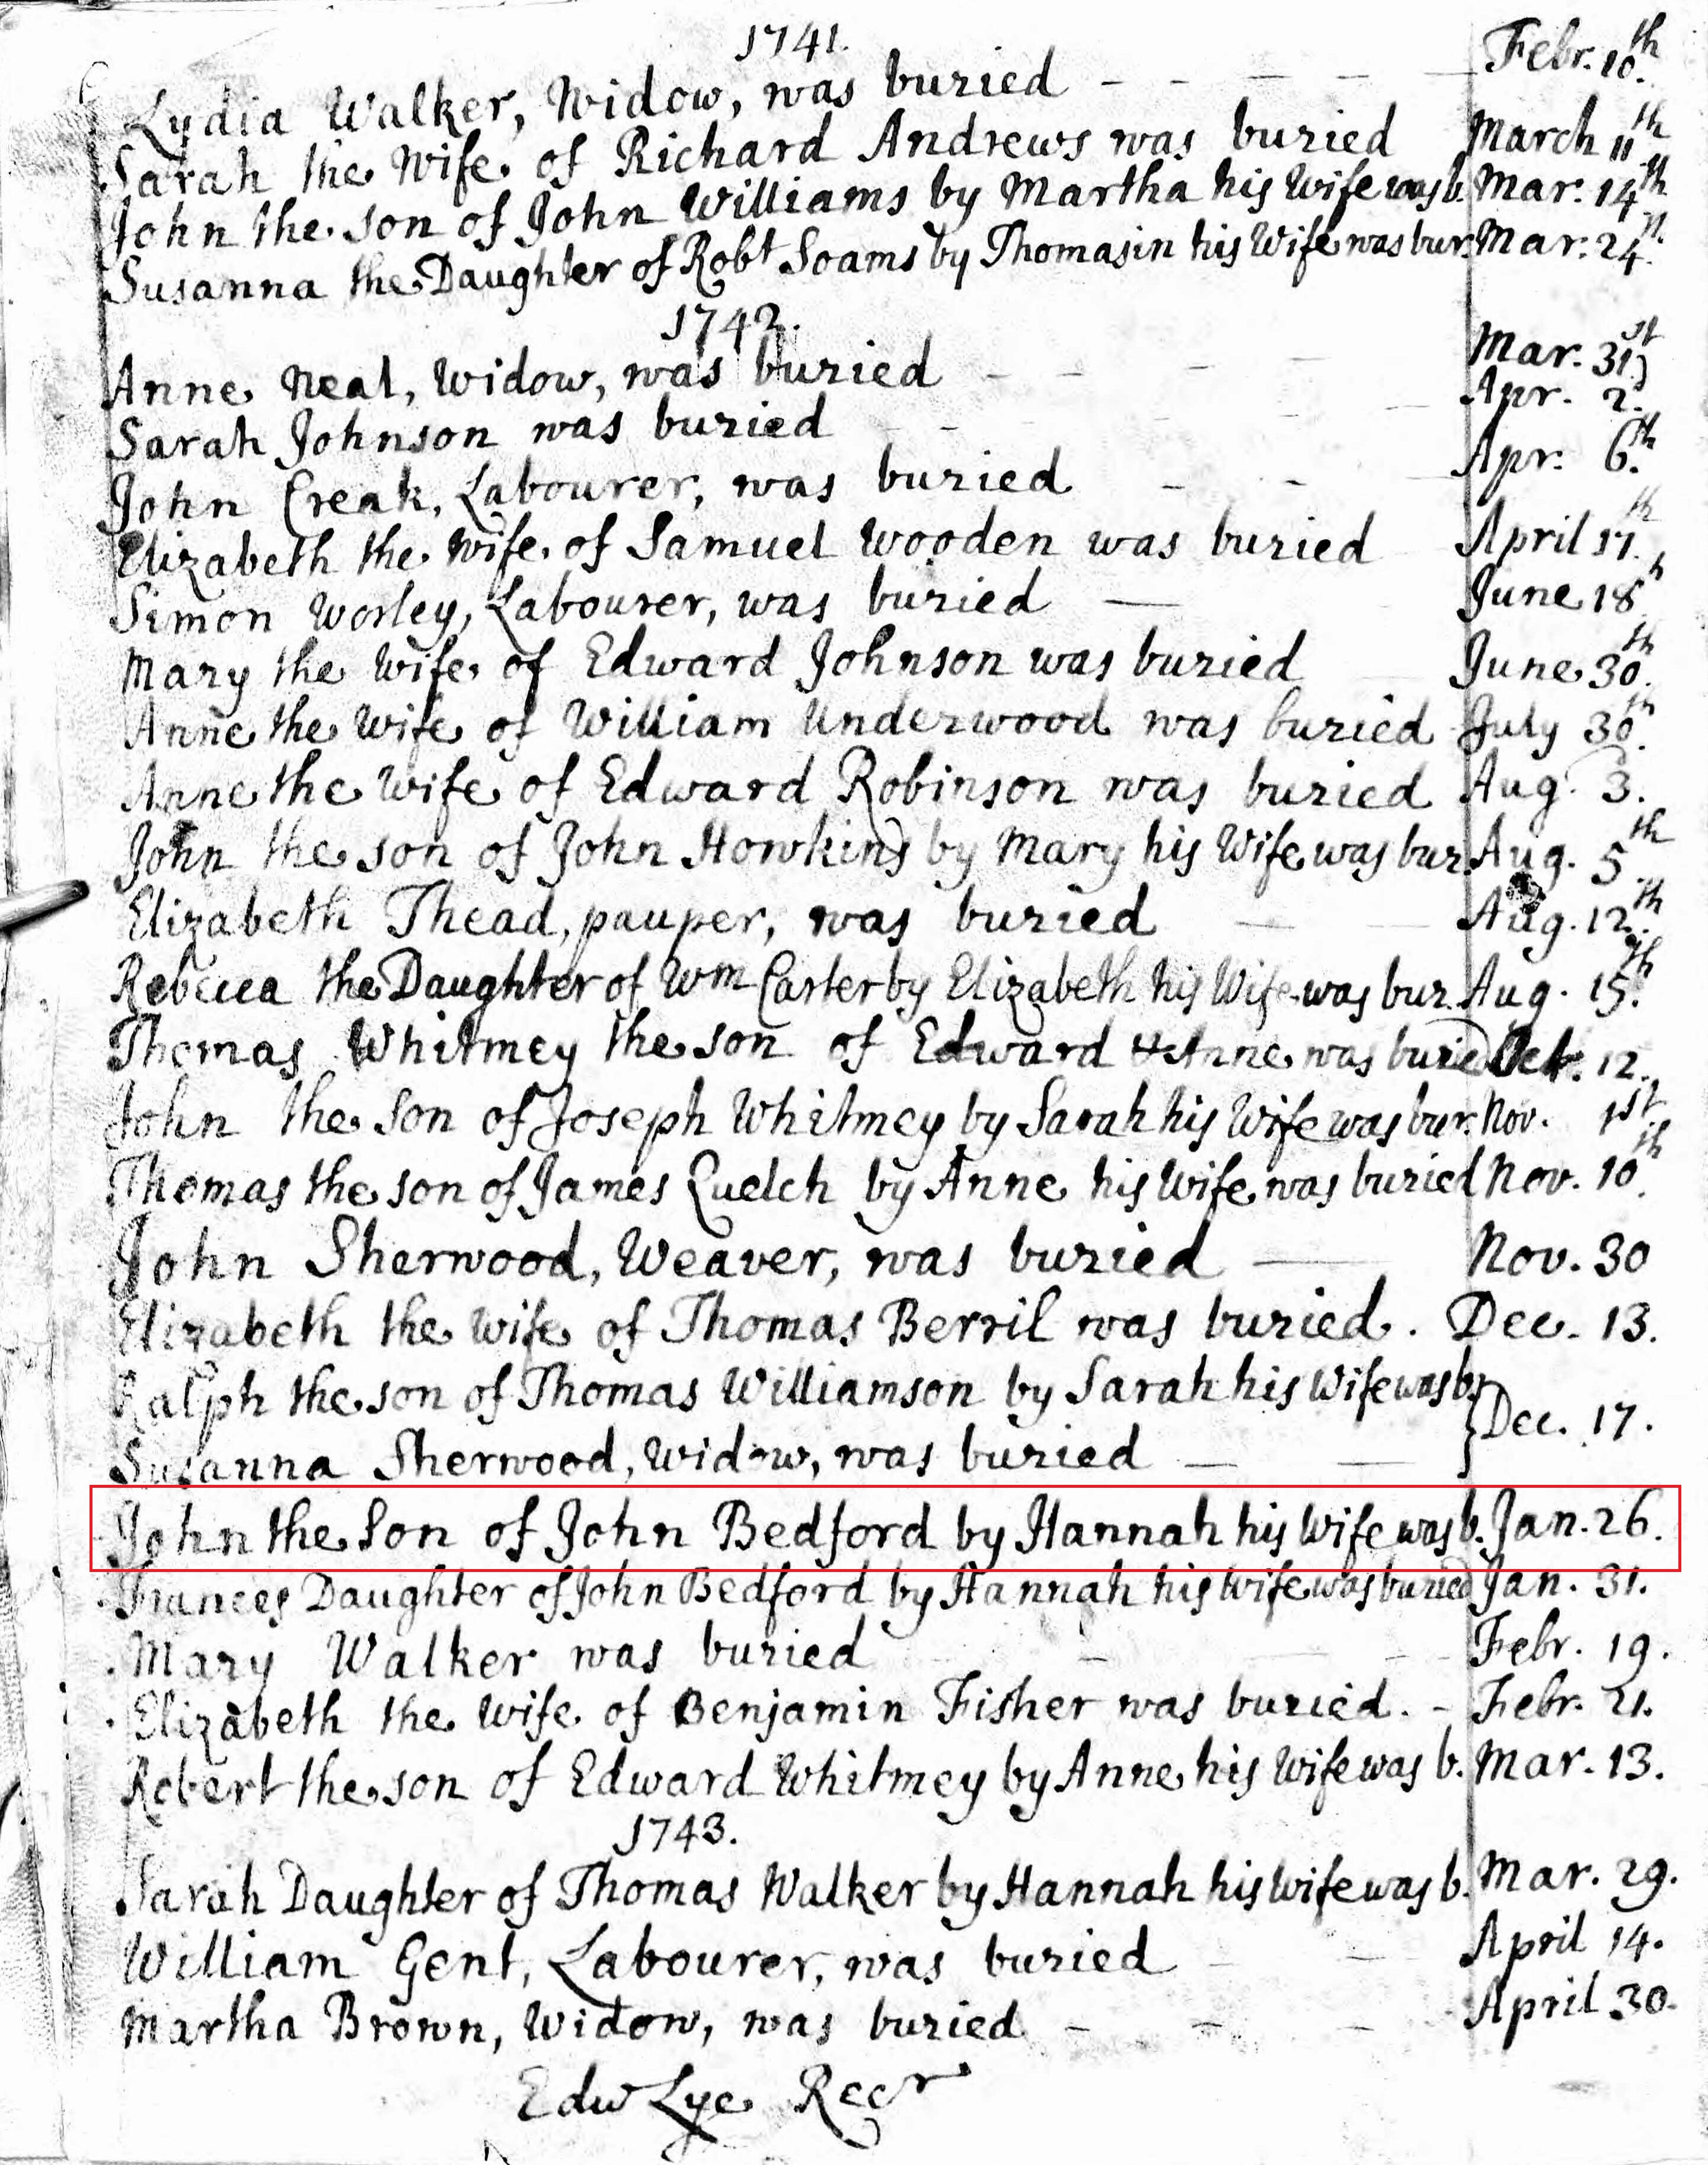 1741.
Lydia Walker, Widow, was buried Febr. 10th
Sarah the Wife of Richard Andrews was buried March 11th
John the son of John Williams by Martha his Wife was b. Mar. 14th
Susanna the Daughter of Robt Soams by Thomasin his Wife was bur. Mar. 24th
1742.
Anne Neal, Widow, was buried Mar. 31st
Sarah Johnson was buried Apr. 2
John Creak, Labourer, was buried Apr. 6th
Elizabeth the Wife of Samuel Wooden was buried April 17th
Simon Worley, Labourer, was buried June 18th
Mary the Wife of Edward Johnson was buried June 30th
Anne the Wife of William Underwood was buried July 30th
Anne the Wife of Edward Robinson was buried Aug. 3.
John the son of John Howkins by Mary his Wife was bur. Aug. 5th
Elizabeth Thead, pauper, was buried Aug. 12th
Rebecca the Daughter of Wm Carter by Elizabeth his Wife was bur. Aug. 15th
Thomas Whitmey the son of Edward & Anne was buried Oct. 12.
John the Son of Joseph Whitmey by Sarah his Wife was bur. Nov. 1st
Thomas the son of James Quelch by Anne his Wife was buried Nov. 10th
John Sherwood, Weaver, was buried Nov. 30
Elizabeth the Wife of Thomas Berril was buried. Dec. 13.
Ralph the son of Thomas Williamson by Sarah his Wife was b.
Dec. 17.
Susanna Sherwood, Widow, was buried
John the Son of John Bedford by Hannah his Wife was b. Jan. 26.
Frances Daughter of John Bedford by Hannah his Wife was buried Jan. 31.
Mary Walker was buried Febr. 19.
Elizabeth the Wife of Benjamin Fisher was buried. Febr. 21.
Robert the son of Edward Whitmey by Anne his Wife was b. Mar. 13.
1743.
Sarah Daughter of Thomas Walker by Hannah his Wife was b. Mar. 29.
William Gent, Labourer, was buried April 14.
Martha Brown, Widow, was buried April 30.
Edw Lye Recr